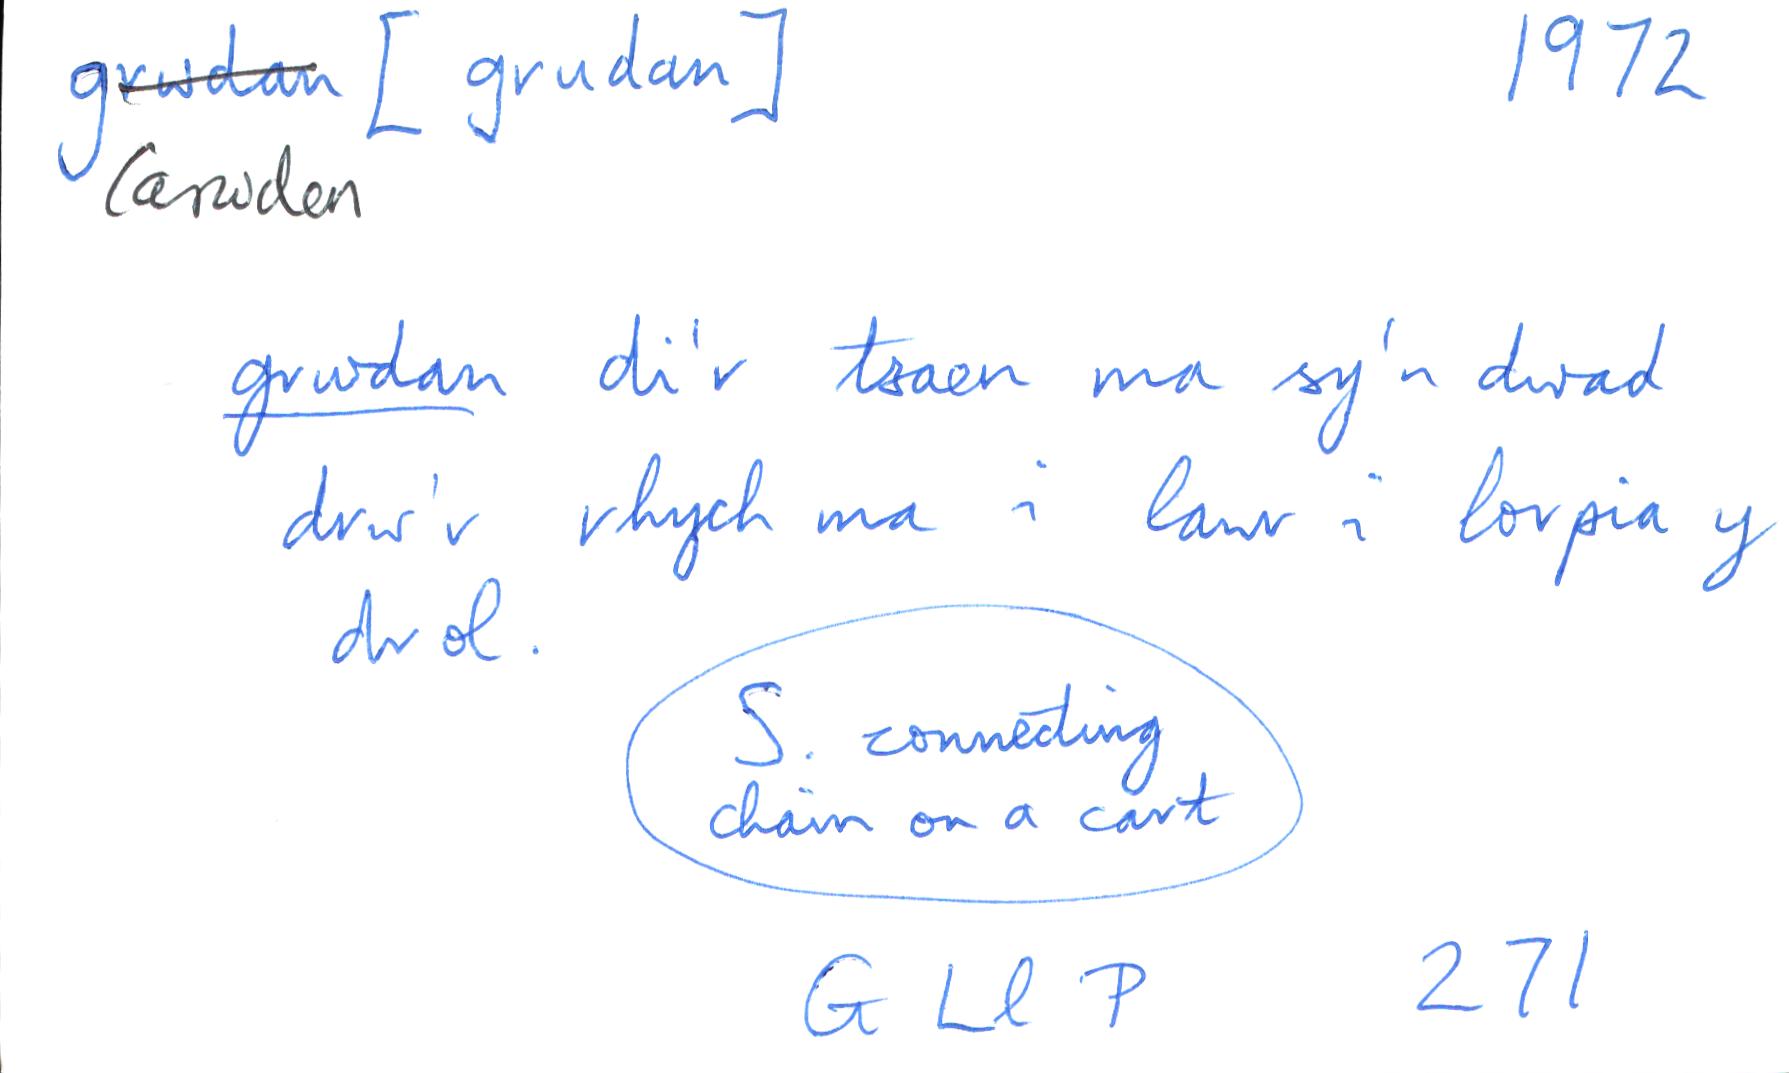 grwdan [grudan] 1972
Carwden
grwdan di'r tsaen ma sy'n dwad
drw'r rhych ma i lawr i lorpia y
drol.
S. connecting
chain on a cart
G Ll P 271